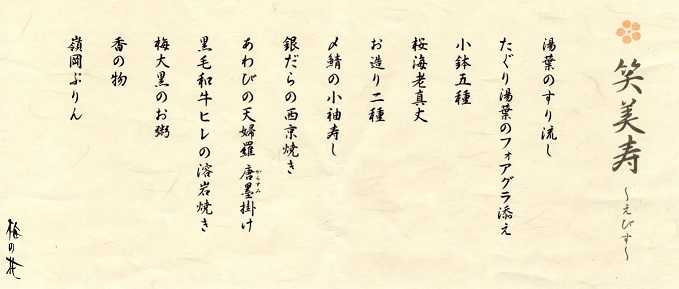 笑美寿
～えびす～
湯葉のすり流し
たぐり湯葉のフォアグラ添え
小鉢五種
桜海老真丈
お造り二種
〆鯖の小袖寿し
銀だらの西京焼き
あわびの天婦羅 唐墨掛け
からすみ
黒毛和牛ヒレの溶岩焼き
梅大黒のお粥
香の物
嶺岡ぷりん
梅の花